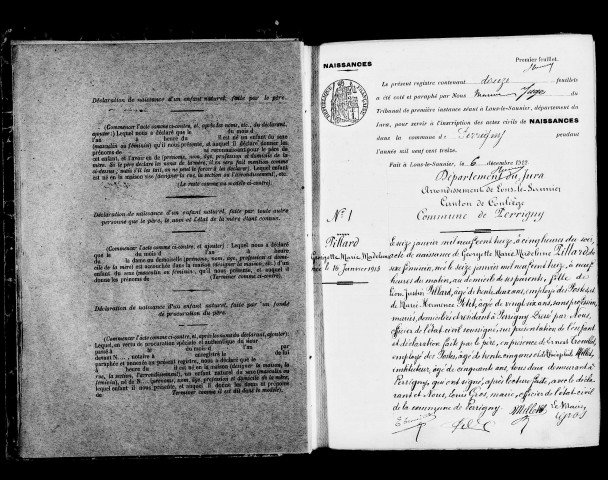 Déclaration de naissance d'un enfant naturel, faite par le père.
(Commencer l'acte comme ci-contre, et, après les noms, etc., du déclarant,
ajouter :) Lequel nous a déclaré que le du mois d
à heure du il est né un enfant du sexe
(masculin ou féminin) qu'il nous présente, et auquel il déclare donner les
prénoms de se reconnaissant pour le père de cet
enfant, et l'avoir eu de (prénoms, nom, âge, profession et domicile de la
mère. Si le père déclare les nom de la mère, il en sera fait mention comme
ci-dessus, mais s'il les tait, on ne peut le forcer à les déclarer). Lequel enfant
est né en la maison sise (désigner la rue, la section ou l'arrondissement), etc.
(Le reste comme au modèle ci-contre).
Déclaration de naissance d'un enfant naturel, faite par toute autre
personne que le père, le nom et l'état de la mère étant connus.
(Commencer l'acte comme ci-contre, et ajouter) : Lequel nous a déclaré
que le du mois d à heure
la dame ou demoiselle (prénoms, nom, âge, profession et domi-
cile de la mère) est accouchée dans la maison (désigner la maison, etc.) d'un
enfant du sexe (masculin ou féminin), qu'il nous présente, et auquel il
donne les prénoms de (Terminer comme ci-contre).
Déclaration de naissance d'un enfant naturel, faite par un fondé
de procuration du père.
(Commencer l'acte comme ci-contre, et, après les noms du déclarant, ajouter) :
Lequel, en vertu de procuration spéciale et authentique du sieur
passée à le du mois d l'an par
devant N..., notaire à enregistrée le de lui
paraphée et annexée au présent registre, nous a déclaré que le
heure d il est né en la maison (désigner la maison, la
rue, la section, l'arrondissement), un enfant naturel du sexe (masculin ou
féminin), né de N... (prénoms, nom, âge, profession et domicile de la mère),
qu'il nous présente, et auquel il donne les nom et prénoms de
(Terminer comme il est dit dans le modèle).
Premier feuillet.
NAISSANCES
Le présent registre contenant douze feuillets
a été coté et paraphé par Nous Juge du
Tribunal de première instance séant à Lons-le-Saunier, département du
Jura, pour servir à l'inscription des actes civils de NAISSANCES
dans la commune de Perrigny pendant
l'année mil neuf cent treize.
Fait à Lons-le-Saunier, le 6 décembre 1912
Département du Jura
Arrondissement de Lons-le-Saunier
Canton de Conliège
Commune de Perrigny
N° 1
Pillard
Georgette Marie Madeleine
née le 16 janvier 1913
Le seize janvier mil neuf cent treize, à cinq heures du soir,
acte de naissance de Georgette Marie Madeleine Pillard, du
sexe féminin, née le seize janvier mil neuf cent treize, à neuf
heures du matin, au domicile de ses parents, fille de
Léon Justin Pillard, âgé de trente deux ans, employé des Postes et
de Marie Hermance Petit, âgée de vingt six ans, sans profession,
mariés, domiciliés et résidant à Perrigny. Dressé par Nous,
officier de l'état-civil soussigné, sur présentation de l'enfant
et déclaration faite par le père, en présence de Ernest
employé des Postes, âgé de trente cinq ans et de Millet,
instituteur, âgé de cinquante ans, tous deux demeurant à
Perrigny, qui ont signé, après lecture faite, avec le décla-
rant et Nous, Louis Gros, maire, officier de l'état-civil
de la commune de Perrigny.
Millet Le Maire
Gros